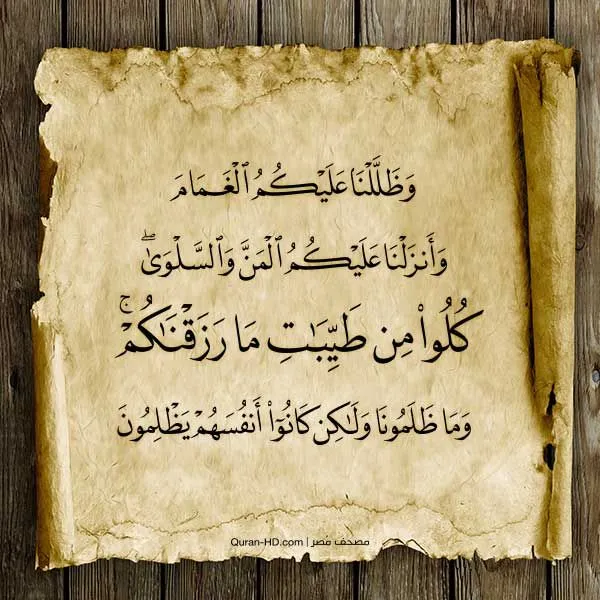 وَظَلَّلْنَا عَلَيْكُمُ ٱلْغَمَامَ
وَأَنزَلْنَا عَلَيْكُمُ ٱلْمَنَّ وَٱلسَّلْوَىٰۖ
كُلُوا۟ مِن طَيِّبَـٰتِ مَا رَزَقْنَـٰكُمْۚ
وَمَا ظَلَمُونَا وَلَـٰكِن كَانُوٓا۟ أَنفُسَهُمْ يَظْلِمُونَ
مصحف مصر | Quran-HD.com